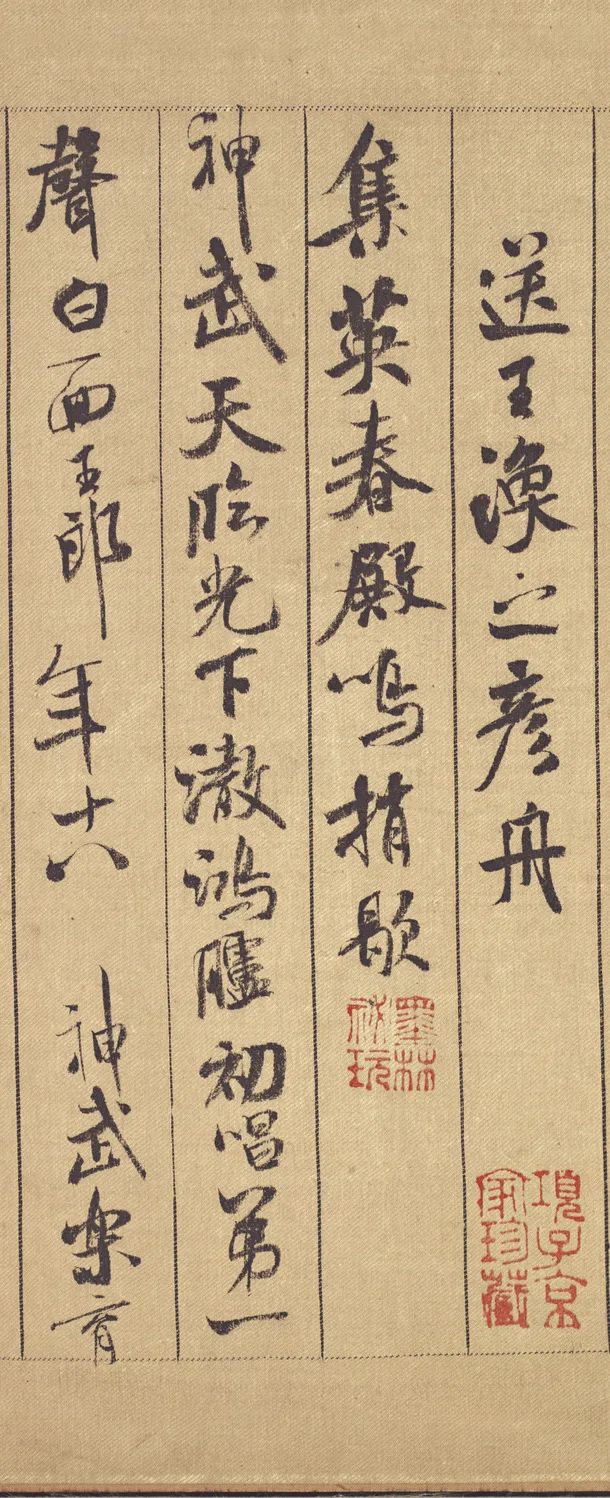 送王渙之彥舟
項子京家珍藏
集英春殿鳴捎歇
墨林祕玩
神武天臨光下澈鴻臚初唱第一
聲白面王郎年十八 神武樂育